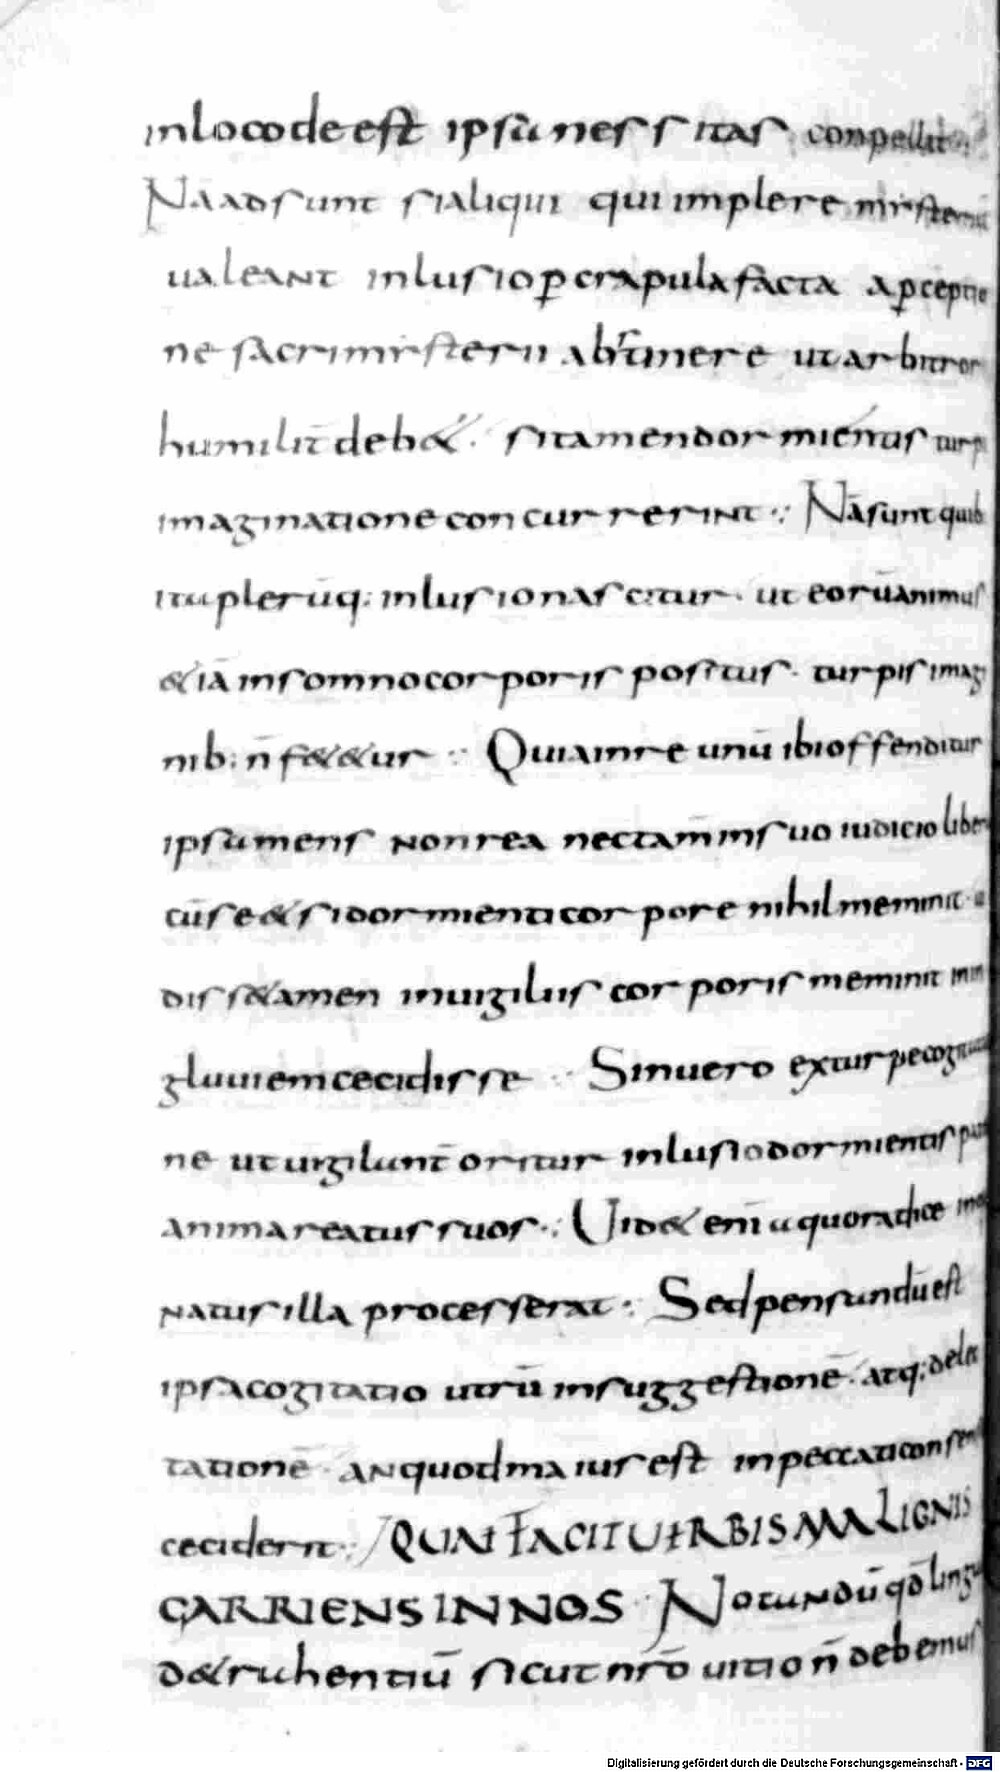 in loco deest ipsa nessitas conpellit
Nā adsunt si aliqui qui implere misteriū
ualeant inlusio p crapula facta a pceptio
ne sacri misterii abstinere ut arbitror
humilit̄ deb&. si tamen dormientis turpi
imaginatione concurrerint :· Nā sunt quib
ita plerūq; inlusio nascitur · ut eorū animus
&iā in somno corporis positus · turpis imagi
nib; n̄ fed&ur :· Quia in re unū ibi offenditur
ipsa mens non rea nec tam̄ in suo iudicio libera
cū se &si dormienti corpore nihil meminit ·
diss& amen in uigiliis corporis meminit in in
gluuiem cecidisse :· Sin uero ex turpe cogitatio
ne ut uigilant̄ oritur inlusio dormientis pat&
anima reatus suos :· Uid& enī a quo radice inqui
natus illa processerat :· Sed pensandū est
ipsa cogitatio utrū in suggestionē · atq; delec
tationē · an quod maius est in peccati consensū
cecidert :· QUAE FACIT UERBIS MALIGNIS
GARRIENS IN NOS · Notandū qd̄ lingu
d&rahentiū sicut nr̄o uitio n̄ debemus